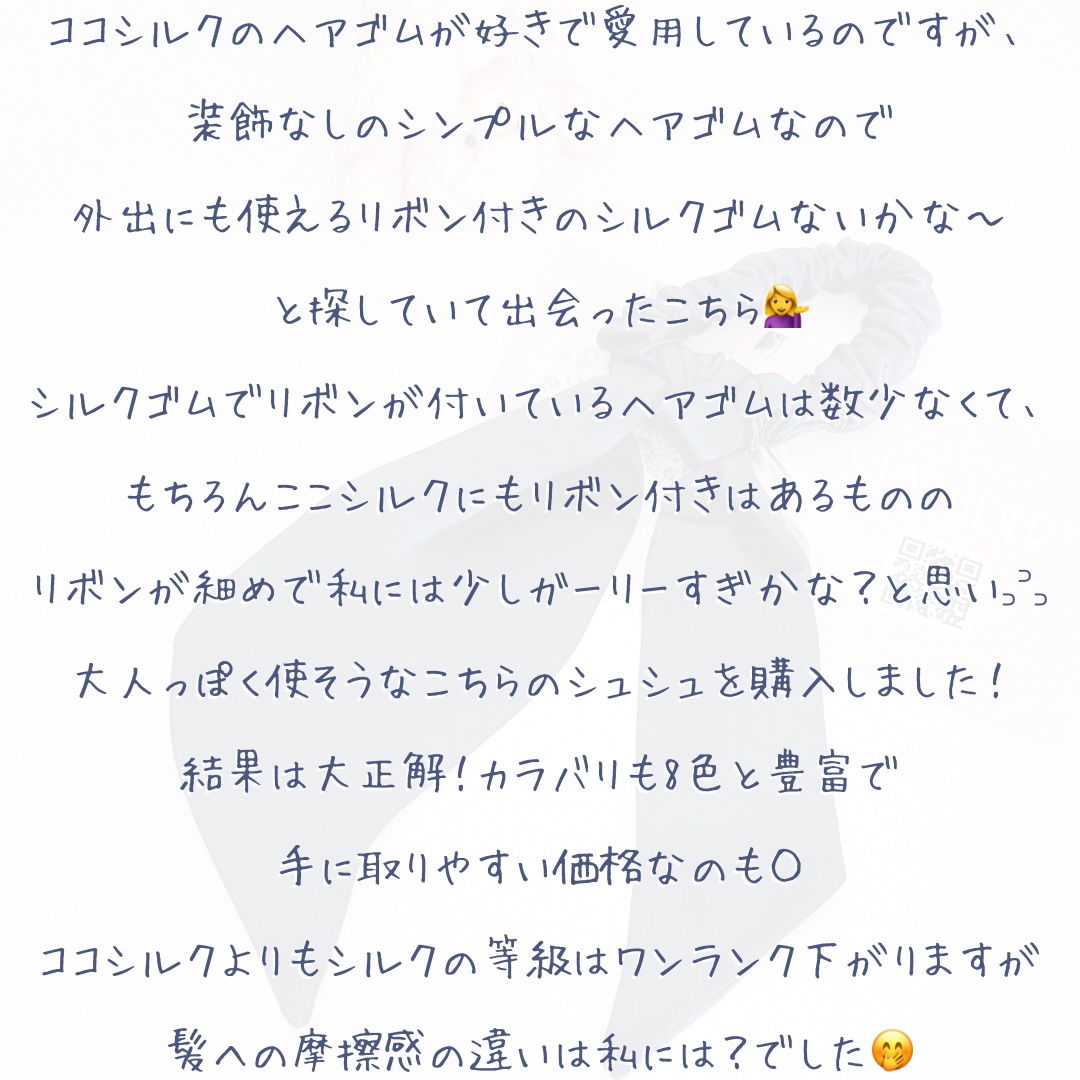 ココシルクのヘアゴムが好きで愛用しているのですが、
装飾なしのシンプルなヘアゴムなので
外出にも使えるリボン付きのシルクゴムないかな〜
と探していて出会ったこちら💁‍♀️
シルクゴムでリボンが付いているヘアゴムは数少なくて、
もちろんここシルクにもリボン付きはあるものの
リボンが細めで私には少しガーリーすぎかな？と思いᵓ ᵓ ᵓ
大人っぽく使そうなこちらのシュシュを購入しました！
結果は大正解！カラバリも8色と豊富で
手に取りやすい価格なのも〇
ココシルクよりもシルクの等級はワンランク下がりますが
髪への摩擦感の違いは私には？でした🤭